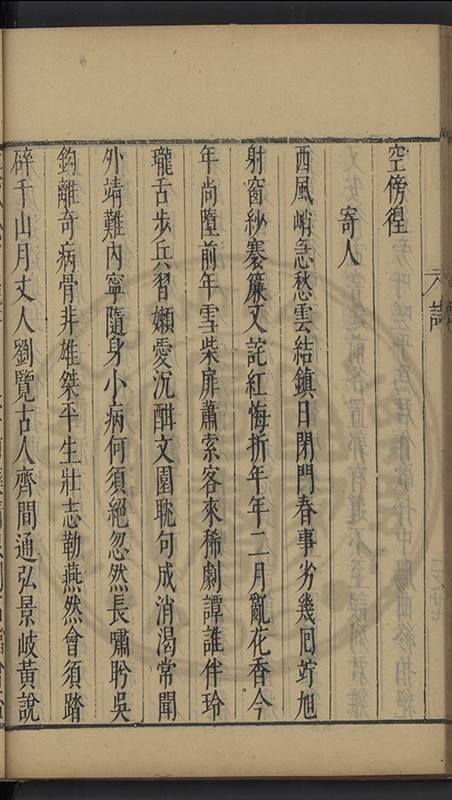 空傍徨
寄人
西風峭急愁雲結鎮日閉門春事劣幾回竚旭
射窗紗褰簾又詫紅梅折年年二月亂花香今
年尚墮前年雪柴扉蕭索客來稀劇譚誰伴玲
瓏舌步兵習嬾愛沉酣文園耽句成消渴常聞
外靖難內寧隨身小病何須絕忽然長嘯肣吳
鈎離奇病骨非雄桀平生壯志勒燕然會須踏
碎千山月丈人劉覽古人齊間通弘景岐黃說